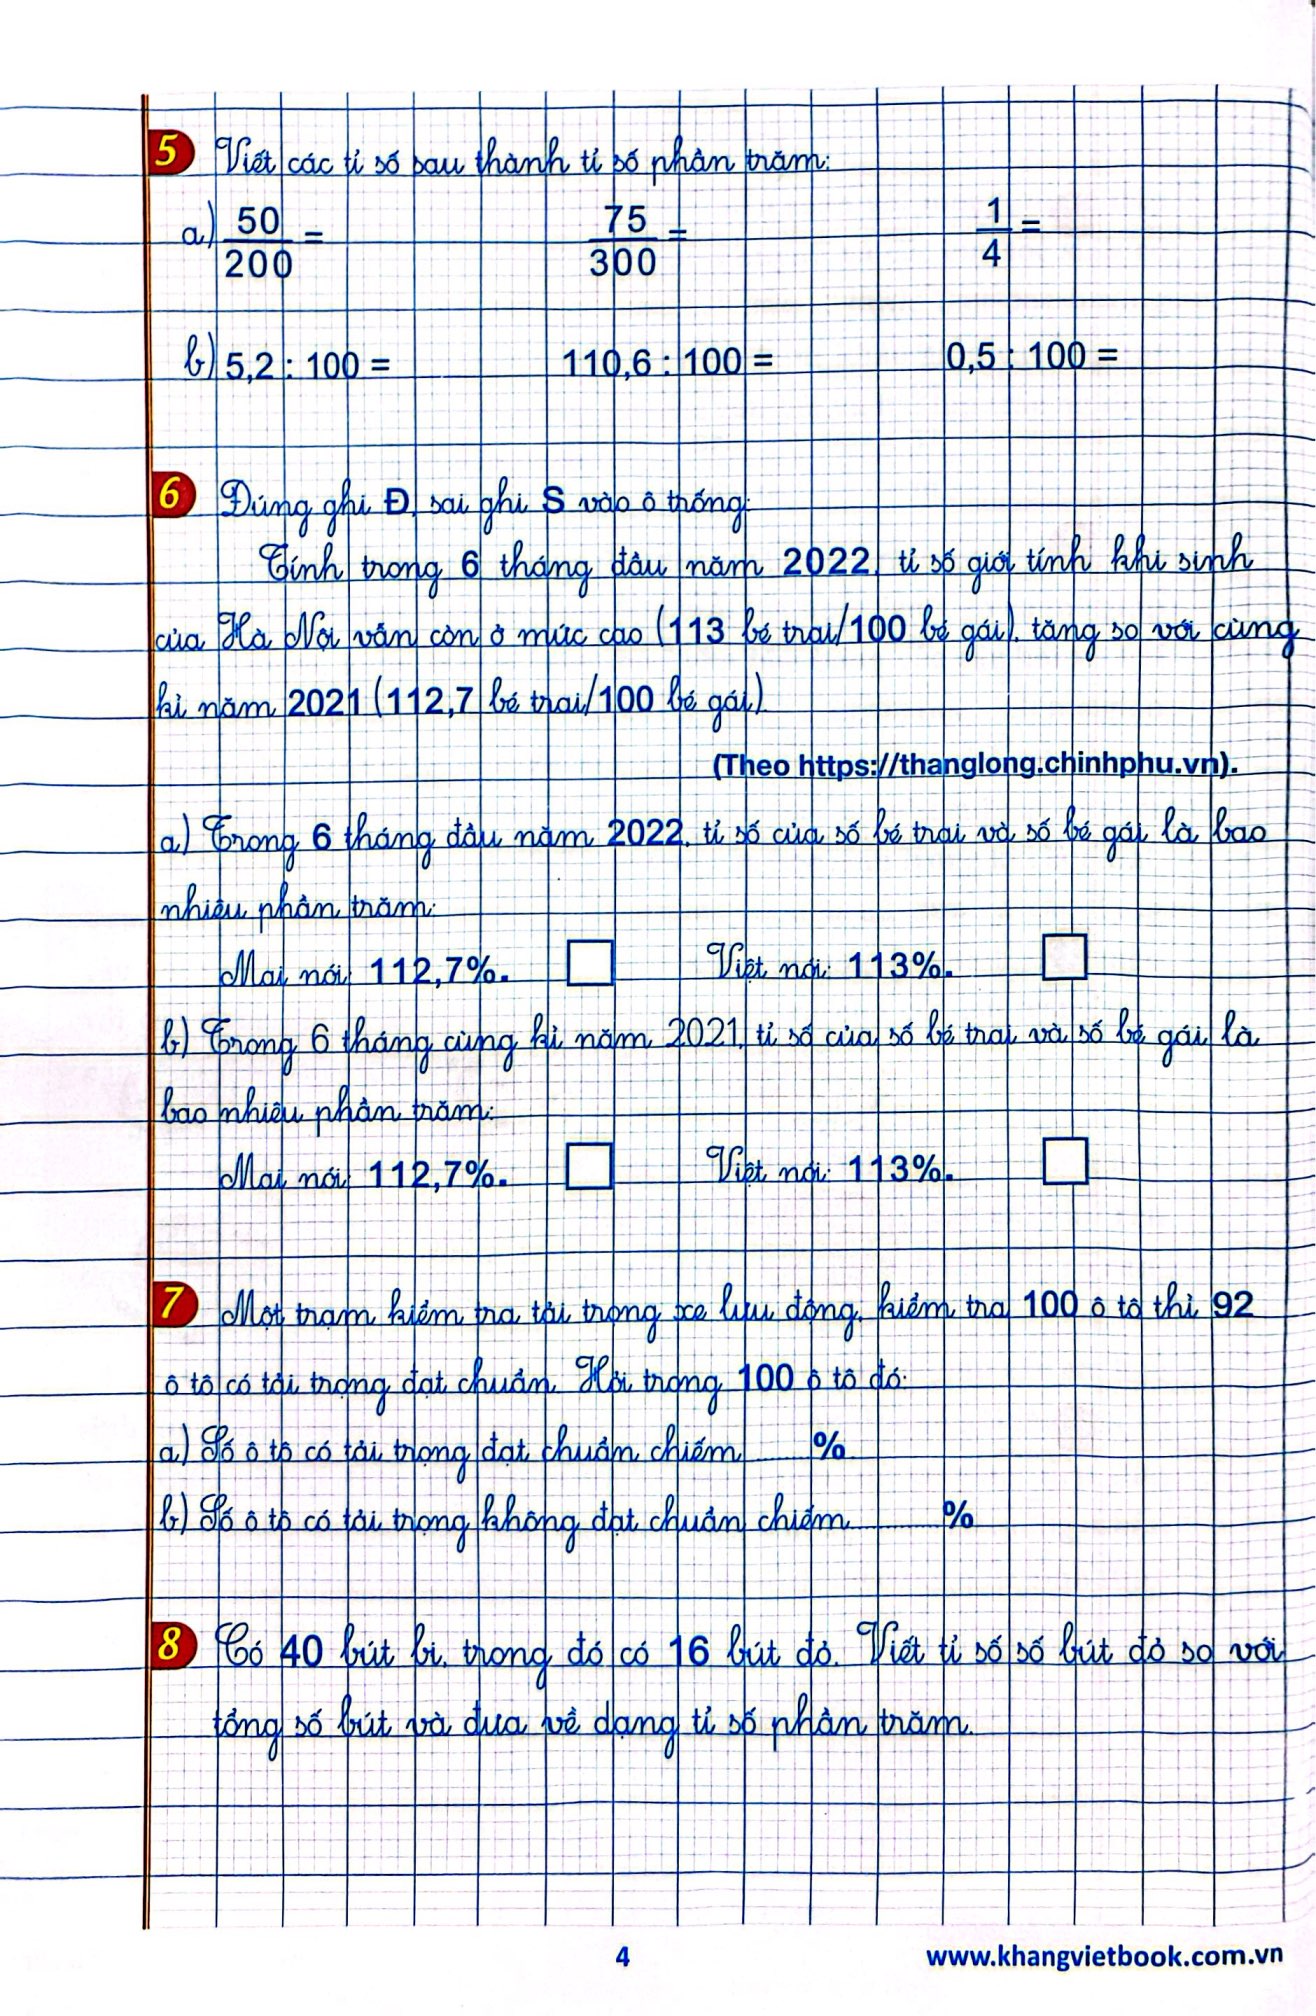 5 Viết các tỉ số sau thành tỉ số phần trăm:
a) 50/200 = 75/300 = 1/4 =
b) 5,2 : 100 = 110,6 : 100 = 0,5 : 100 =
6 Đúng ghi Đ, sai ghi S vào ô trống:
Tính trong 6 tháng đầu năm 2022, tỉ số giới tính khi sinh
của Hà Nội vẫn còn ở mức cao (113 bé trai/100 bé gái), tăng so với cùng
kì năm 2021 (112,7 bé trai/100 bé gái)
(Theo https://thanglong.chinhphu.vn).
a) Trong 6 tháng đầu năm 2022, tỉ số của số bé trai và số bé gái là bao
nhiêu phần trăm:
Mai nói: 112,7%. Việt nói: 113%.
b) Trong 6 tháng cùng kì năm 2021, tỉ số của số bé trai và số bé gái là
bao nhiêu phần trăm:
Mai nói: 112,7%. Việt nói: 113%.
7 Một trạm kiểm tra tải trọng xe lưu động, kiểm tra 100 ô tô thì 92
ô tô có tải trọng đạt chuẩn. Hỏi trong 100 ô tô đó:
a) Số ô tô có tải trọng đạt chuẩn chiếm ........ %
b) Số ô tô có tải trọng không đạt chuẩn chiếm ............ %
8 Có 40 bút bi, trong đó có 16 bút đỏ. Viết tỉ số số bút đỏ so với
tổng số bút và đưa về dạng tỉ số phần trăm.
4 www.khangvietbook.com.vn